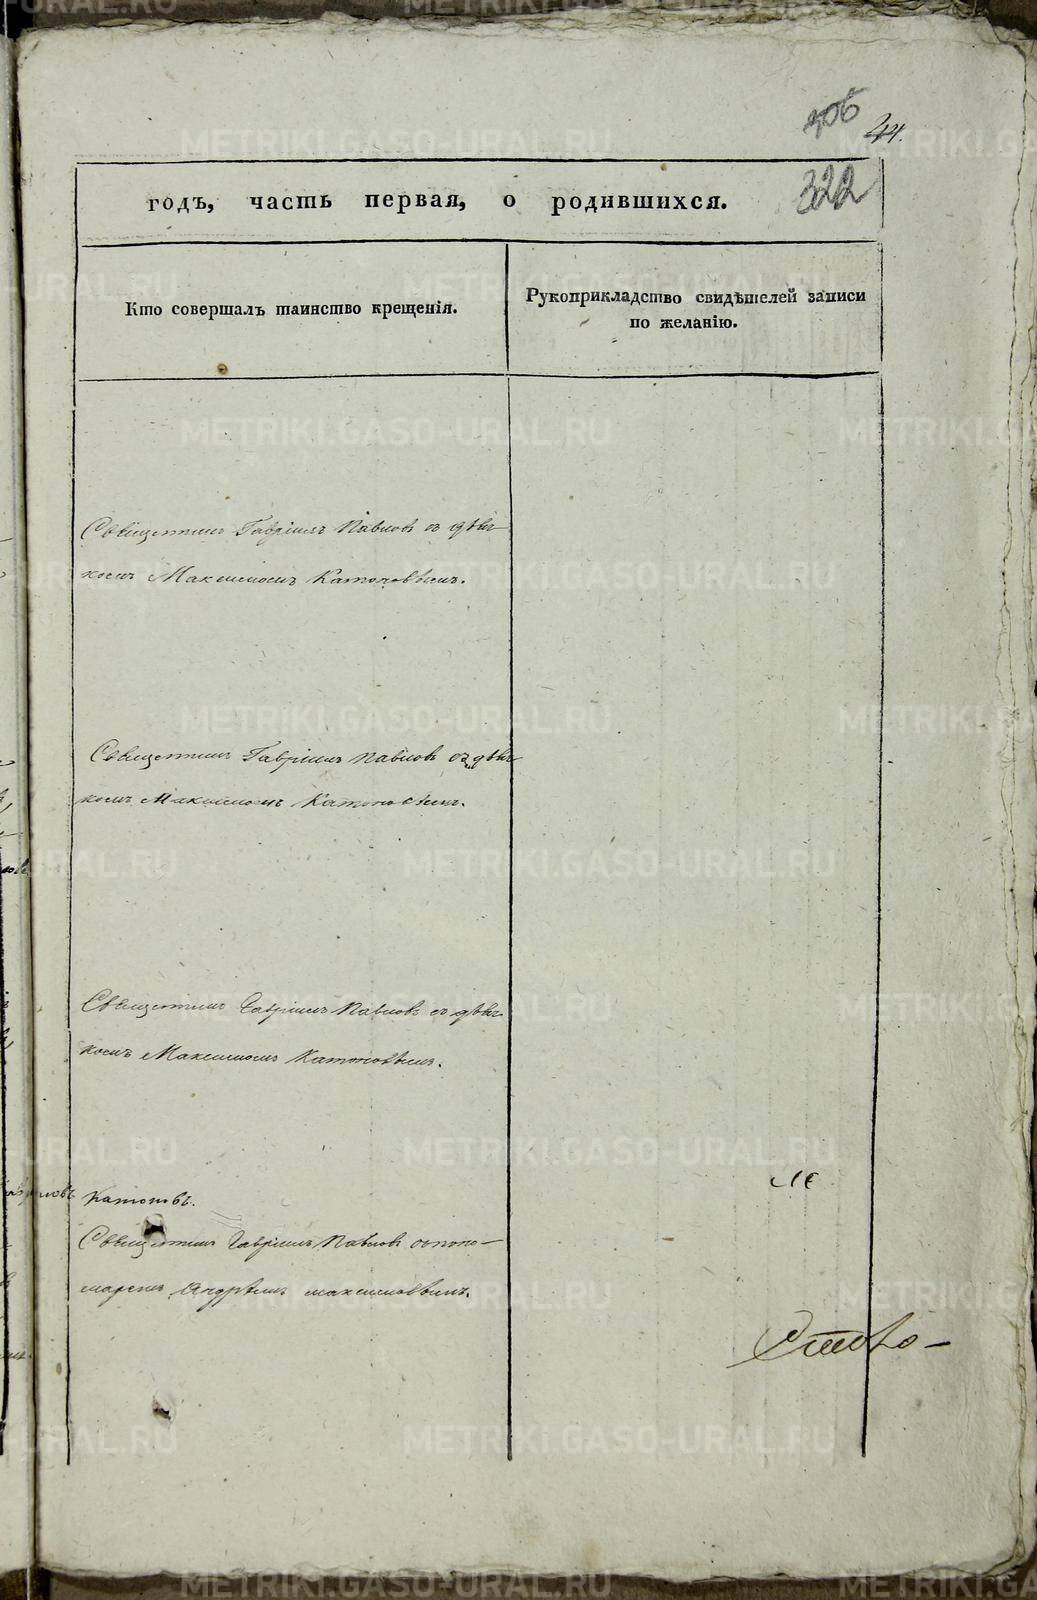 306
44.
322
годъ, часть первая, о родившихся.
Кто совершалъ таинство крещенія.
Рукоприкладство свидѣтелей записи
по желанію.
Священникъ Гавріилъ Павловъ съ дьяч-
комъ Максимомъ Катоновымъ.
Священникъ Гавріилъ Павловъ съ дьяч-
комъ Максимомъ Катоновымъ.
Священникъ Гавріилъ Павловъ съ дьяч-
комъ Максимомъ Катоновымъ.
Катоновъ.
Священникъ Гавріилъ Павловъ съ поно-
маремъ Андреемъ
METRIKI.GASO-URAL.RU